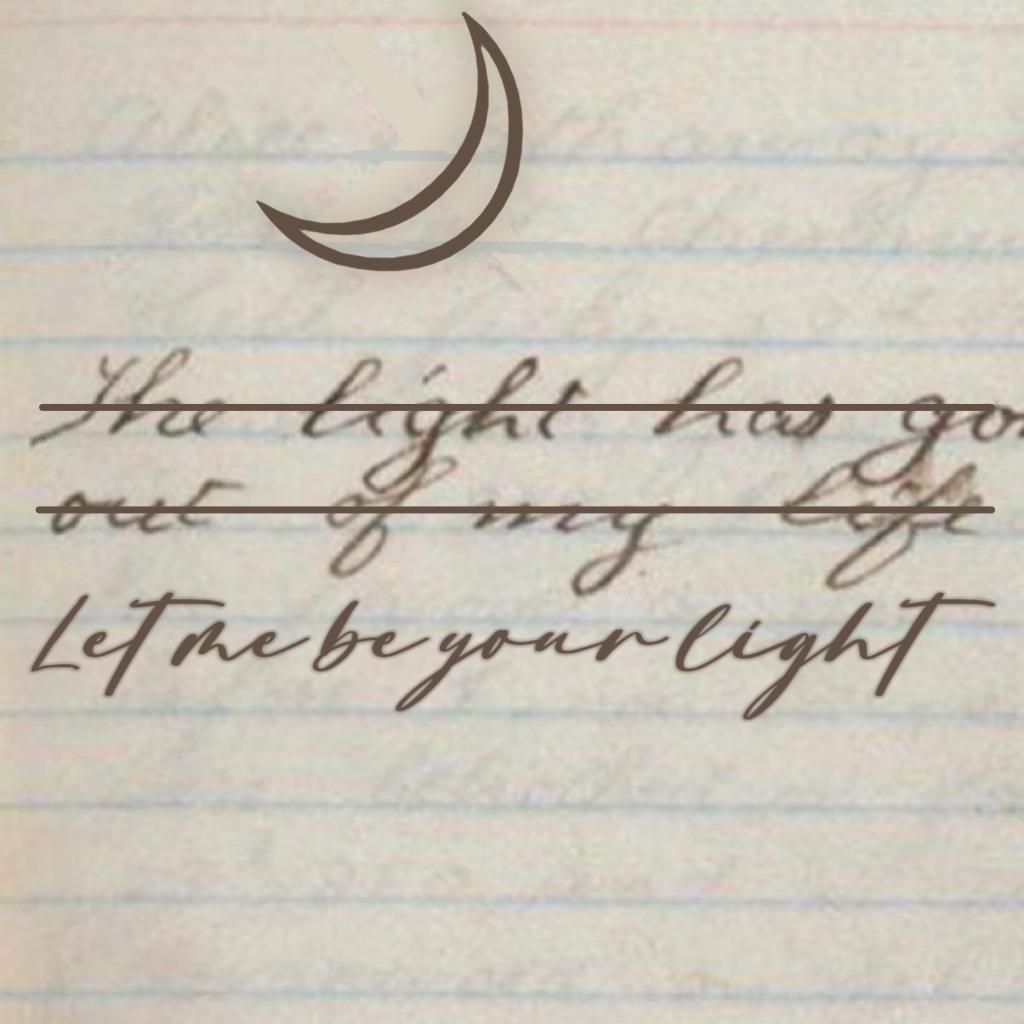 The light has go
out of my life
Let me be your light